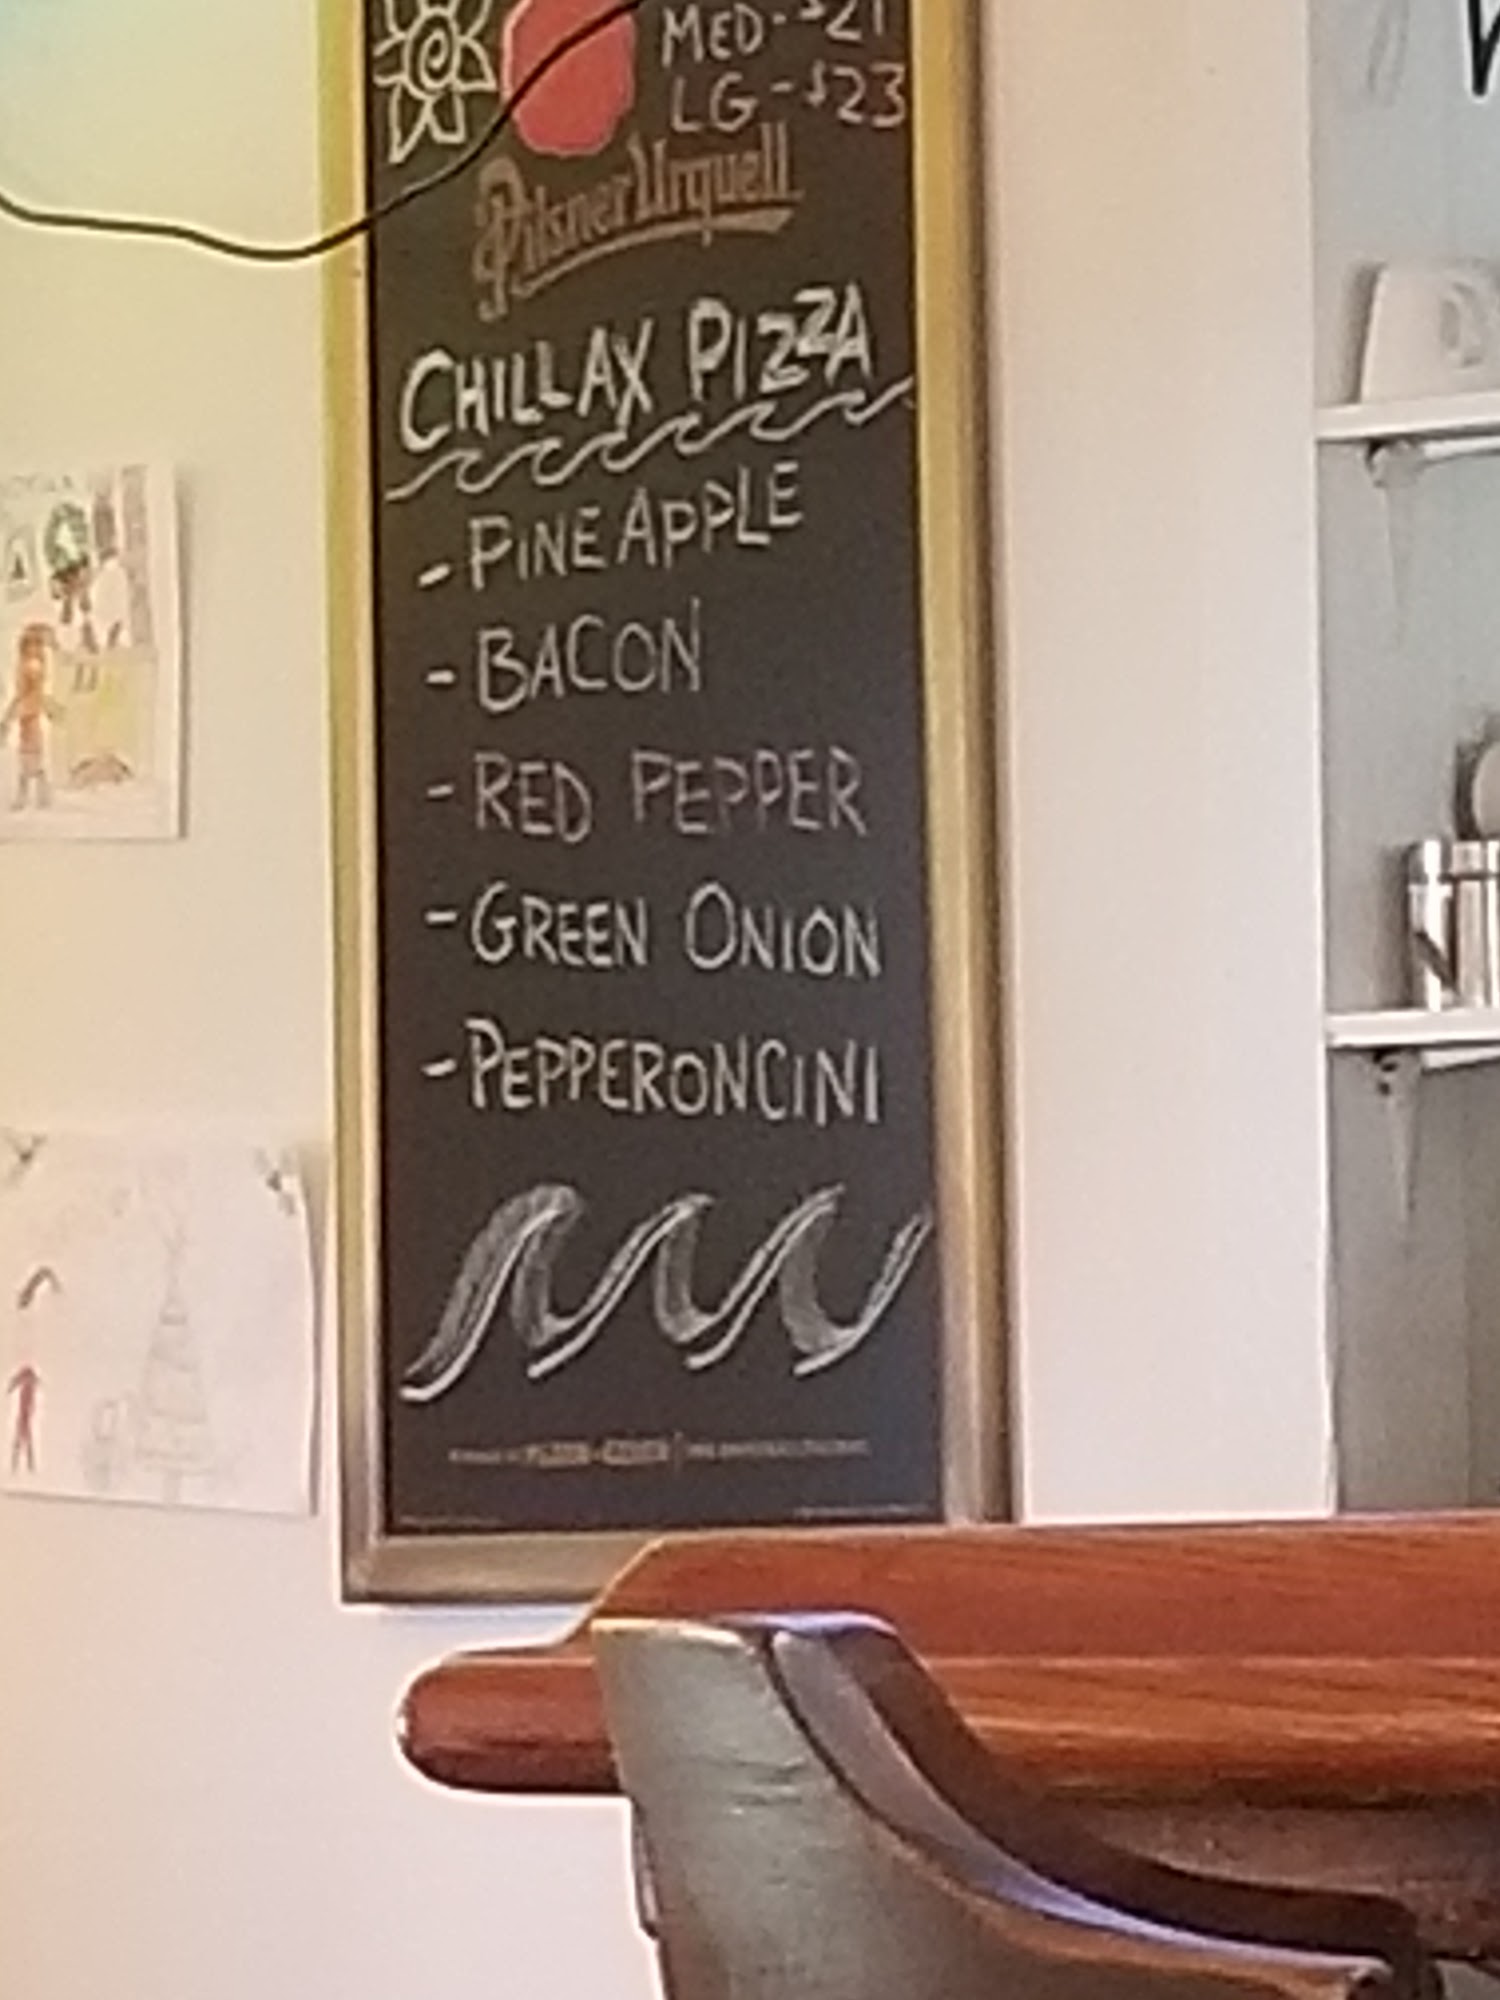 MED - $21
LG - $23
Pilsner Urquell
CHILLAX PIZZA
- PINEAPPLE
- BACON
- RED PEPPER
- GREEN ONION
- PEPPERONCINI